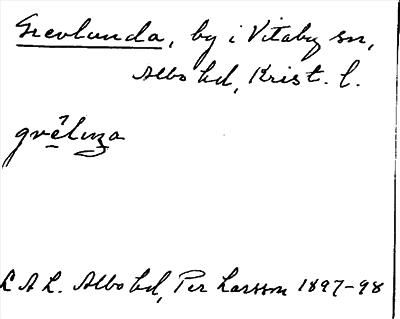 Grevlunda, by i Vitaby sn,
Albo hd, Krist. l.
grêluṉa
L A L. Albo hd, Per Larsson 1897-98